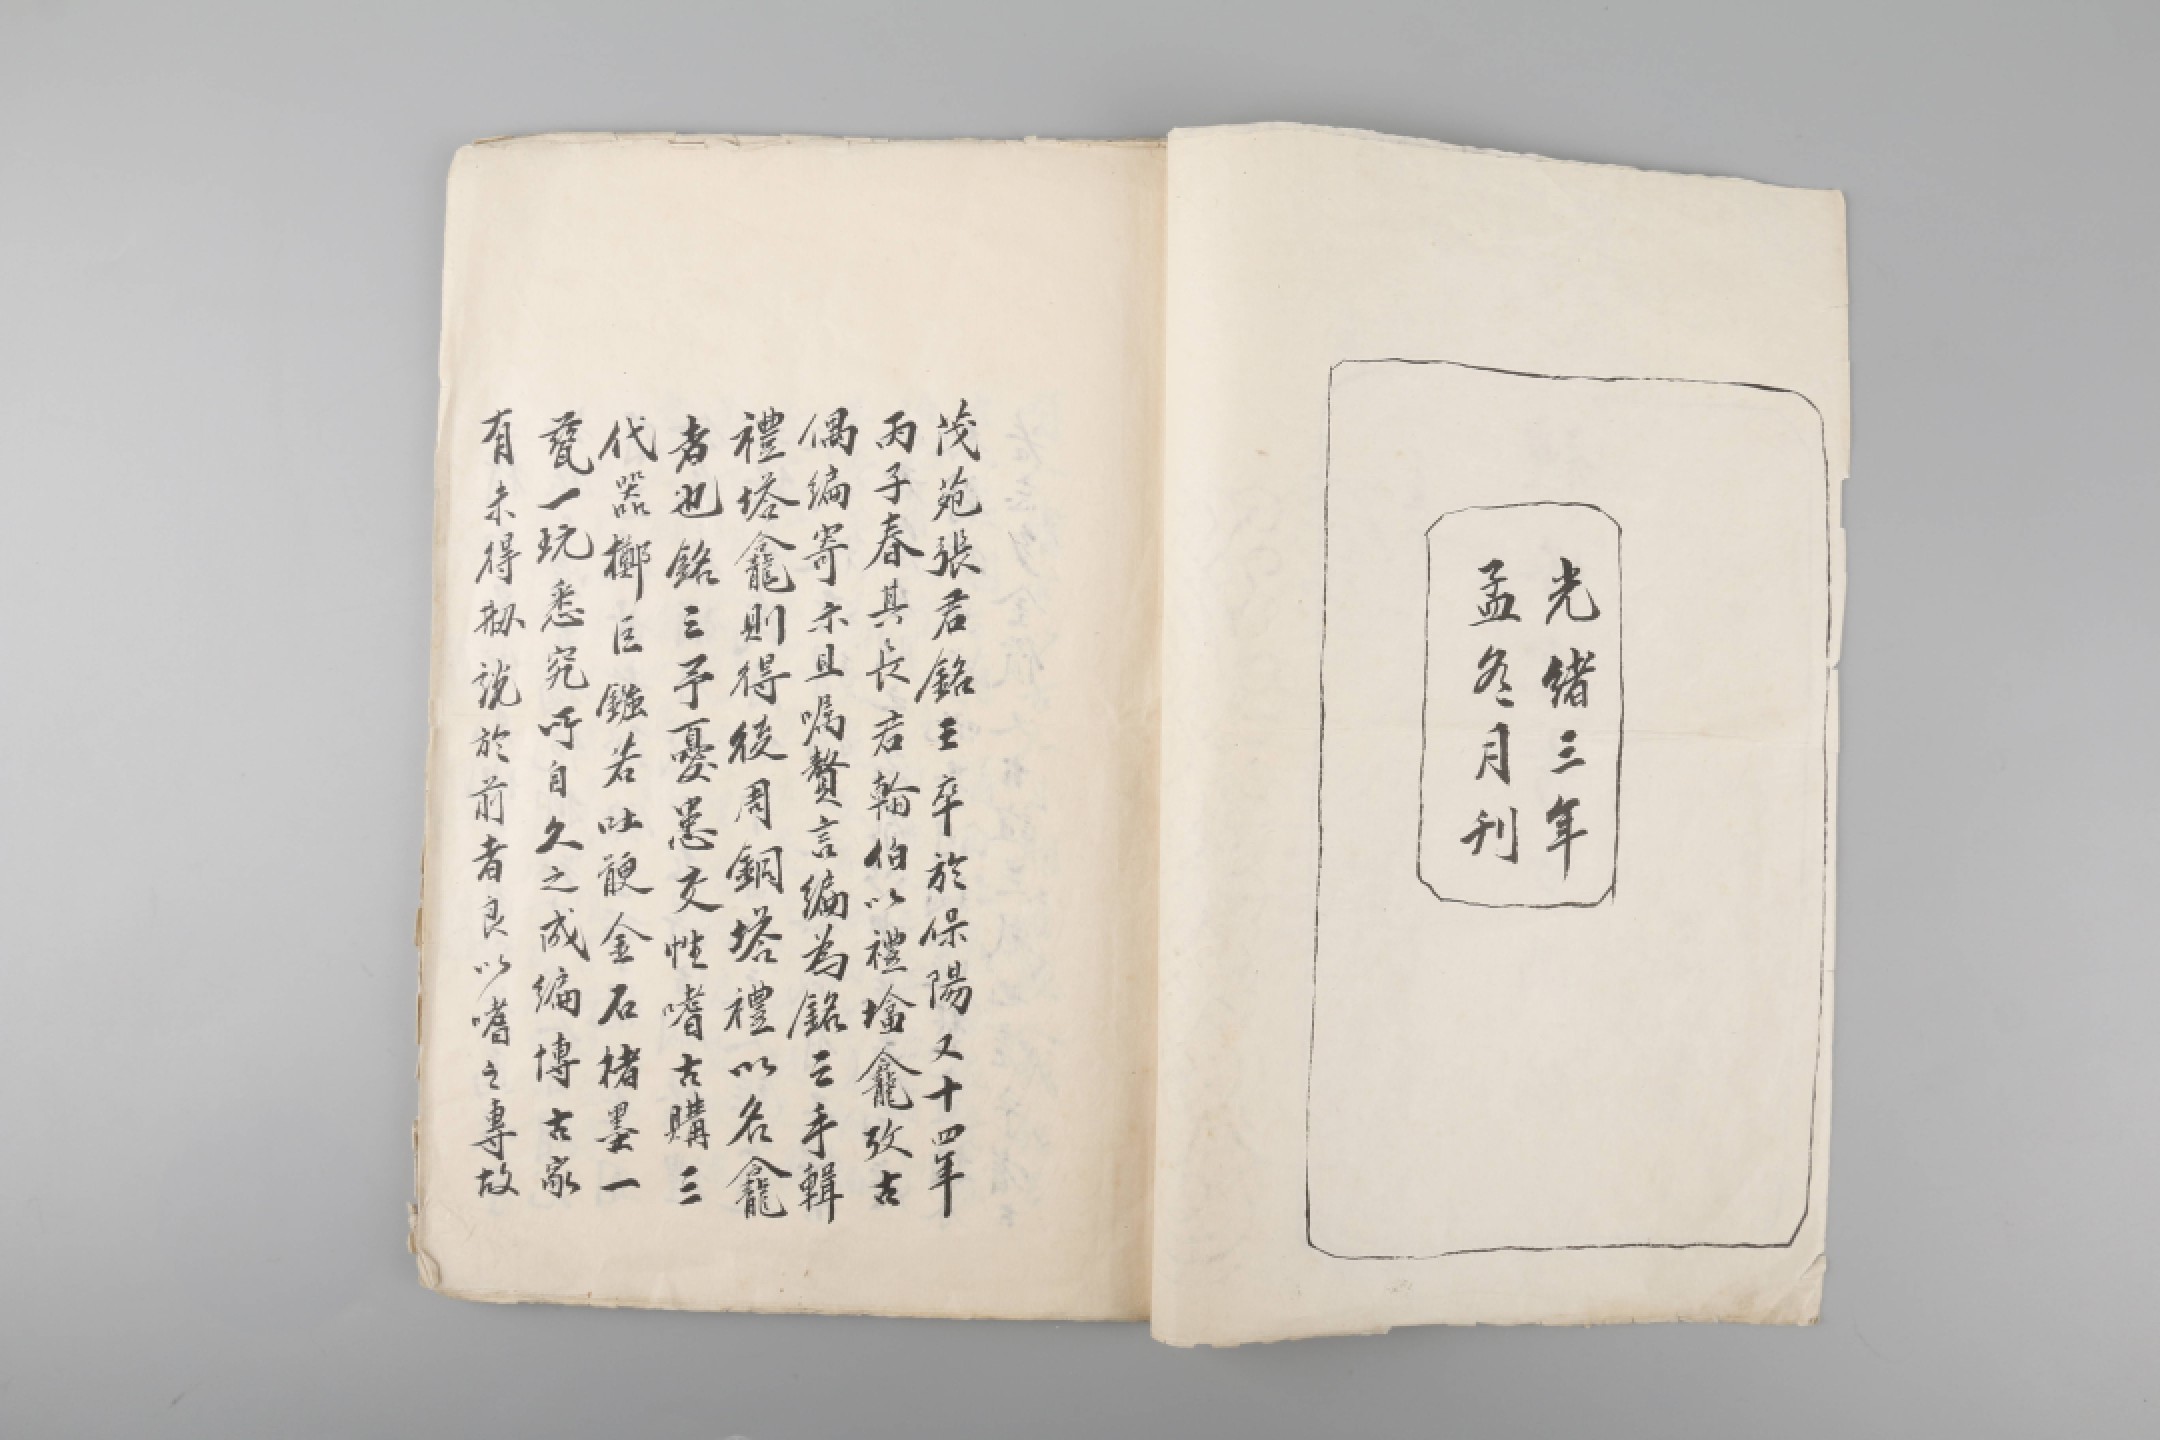 光緒三年
孟冬月刊
茂苑張君銘三卒於保陽又十四年
丙子春其長君輪伯以禮塔龕攷古
偶編寄示且嘱贅言編為銘三手輯
禮塔龕則得後周銅塔禮以名龕
者也銘三予憂患交性嗜古購三
代器擲巨鏹若吐骾金石楮墨一
甃一玩悉究所自久之成編博古家
有未得叔說於前者良以嗜之專故